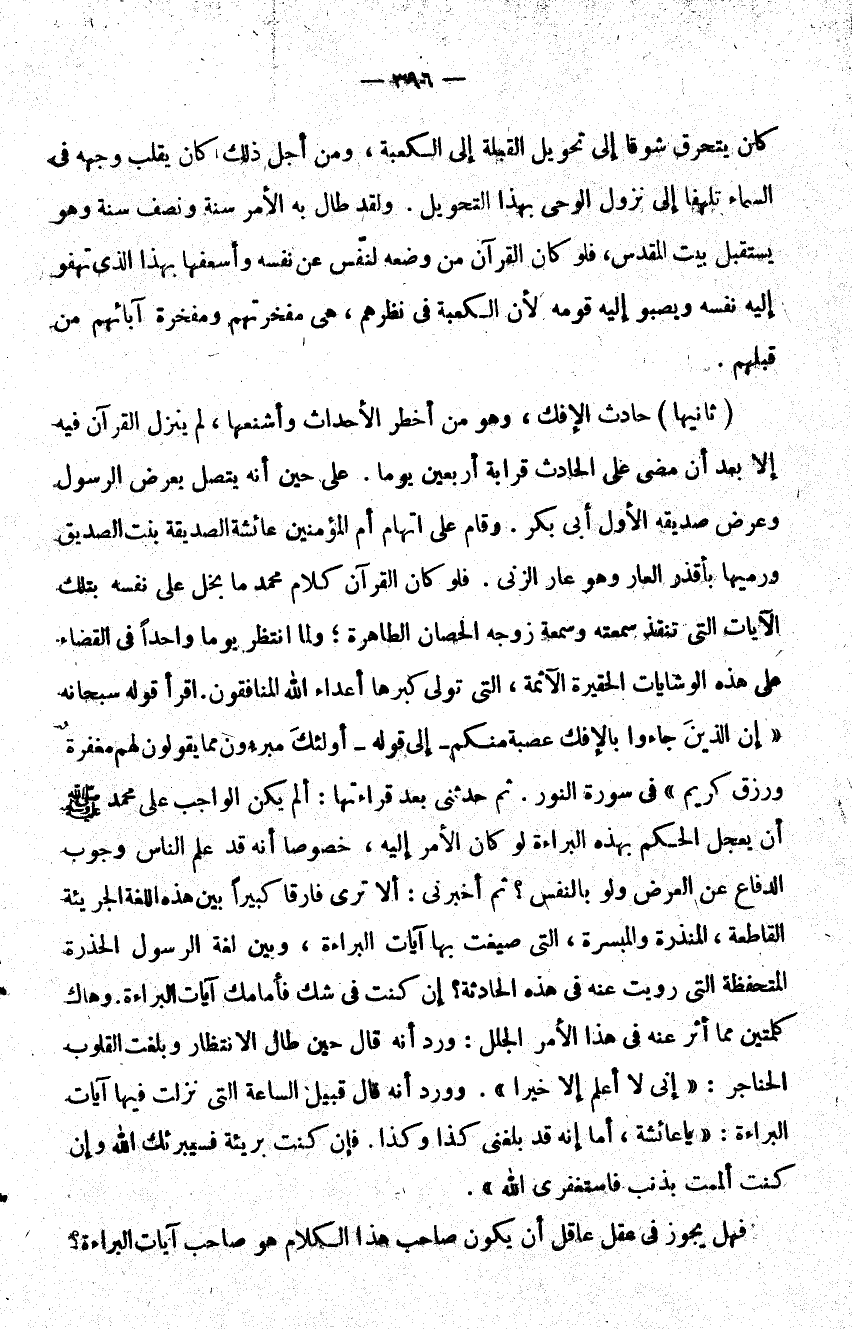 — ٣٩٦ —
كان يتحرق شوقا إلى تحويل القبلة إلى الكعبة ، ومن أجل ذلك كان يقلب وجهه فى
السماء تلهفا إلى نزول الوحى بهذا التحويل . ولقد طال به الأمر سنة ونصف سنة وهو
يستقبل بيت المقدس، فلو كان القرآن من وضعه لنفّس عن نفسه وأسعفها بهذا الذى تهفو
إليه نفسه ويصبو إليه قومه لأن الكعبة فى نظرهم ، هى مفخرتهم ومفخرة آبائهم من
قبلهم .
( ثانيها ) حادث الإفك ، وهو من أخطر الأحداث وأشنعها ، لم ينزل القرآن فيه
إلا بعد أن مضى على الحادث قرابة أربعين يوما . على حين أنه يتصل بعرض الرسول
وعرض صديقه الأول أبى بكر . وقام على اتهام أم المؤمنين عائشة الصديقة بنت الصديق
ورميها بأقذر العار وهو عار الزنى . فلو كان القرآن كلام محمد ما بخل على نفسه بتلك
الآيات التى تنقذ سمعته وسمعة زوجه الحصان الطاهرة ؛ ولما انتظر يوما واحداً فى القضاء
على هذه الوشايات الحقيرة الآثمة ، التى تولى كبرها أعداء الله المنافقون . اقرأ قوله سبحانه
« إن الذينَ جاءوا بالإفك عصبة منكم – إلى قوله – أولئكَ مبرءون مما يقولون لهم مغفرةٌ
ورزق كريم » فى سورة النور . ثم حدثنى بعد قراءتها : ألم يكن الواجب على محمد ﷺ
أن يعجل الحكم بهذه البراءة لو كان الأمر إليه ، خصوصا أنه قد علم الناس وجوب
الدفاع عن العرض ولو بالنفس ؟ ثم أخبرنى : ألا ترى فارقا كبيراً بين هذه اللغة الجريئة
القاطعة ، المنذرة والمبسرة ، التى صيغت بها آيات البراءة ، وبين لغة الرسول الحذرة
المتحفظة التى رويت عنه فى هذه الحادثة؟ إن كنت فى شك فأمامك آيات البراءة . وهاك
كلمتين مما أثر عنه فى هذا الأمر الجلل : ورد أنه قال حين طال الانتظار وبلغت القلوب
الحناجر : « إنى لا أعلم إلا خيرا » . وورد أنه قال قبيل الساعة التى نزلت فيها آيات
البراءة : « ياعائشة ، أما إنه قد بلغنى كذا وكذا . فإن كنت بريئة فسيبرئك الله وإن
كنت ألممت بذنب فاستغفرى الله » .
فهل يجوز فى عقل عاقل أن يكون صاحب هذا الكلام هو صاحب آيات البراءة؟